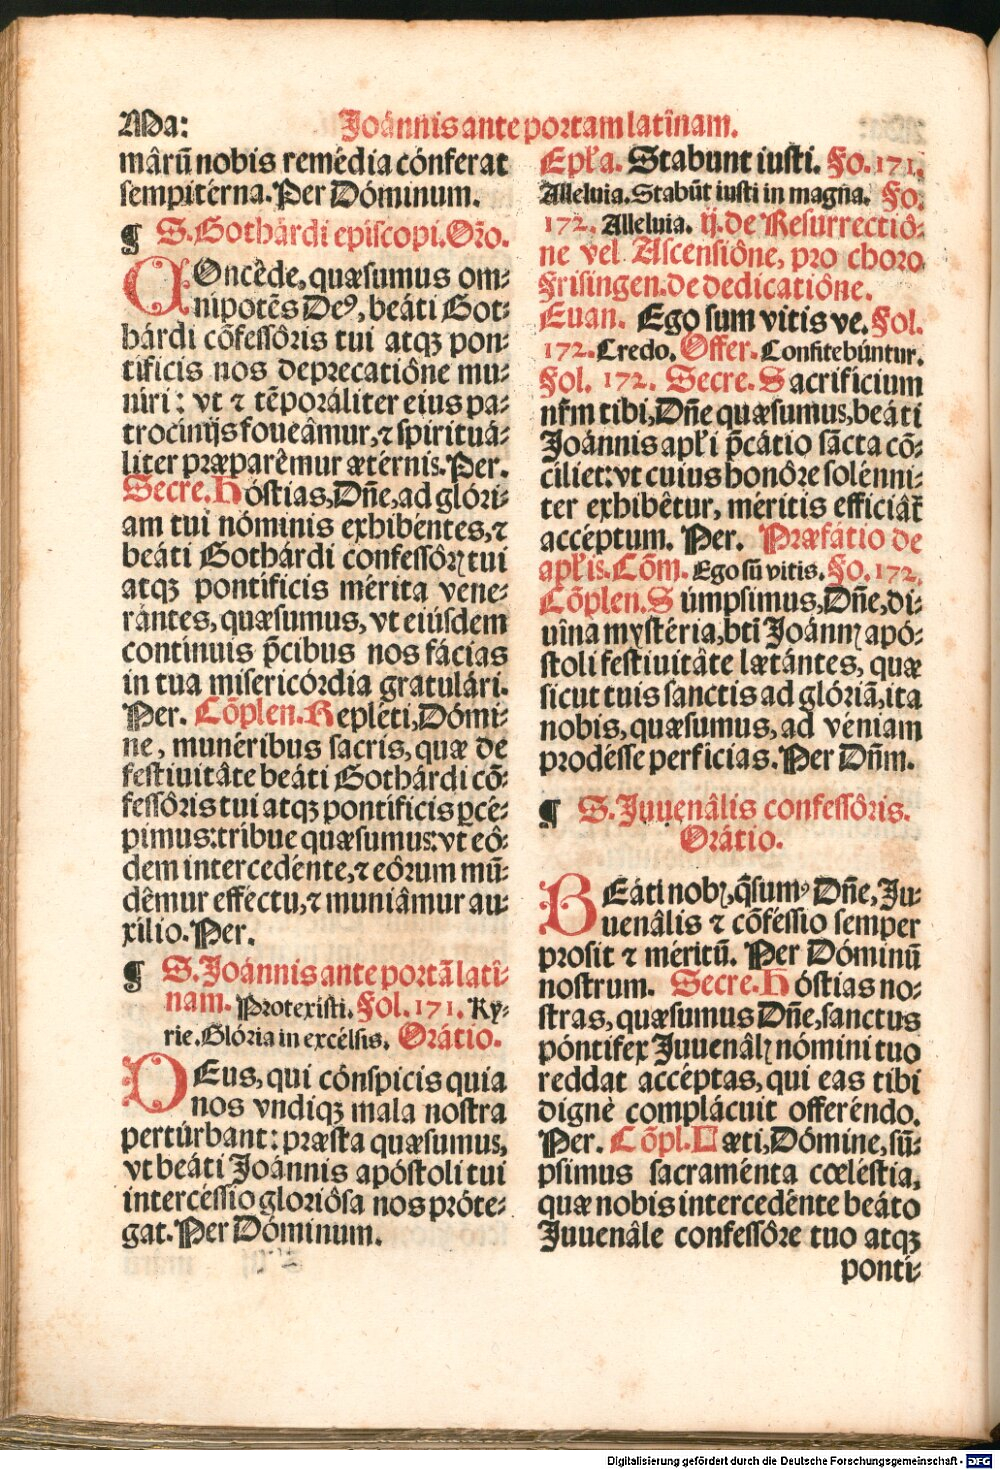 Ma: Joánnis ante portam latînam.
mârũ nobis remédia cónferat
sempitérna. Per Dóminum.
¶ S. Gothárdi episcopi. Orō.
COncêde, quæsumus om⸗
nipotẽs Deꝰ, beáti Got⸗
hárdi cõfessôris tui atqꝫ pon⸗
tificis nos deprecatiône mu⸗
níri: vt ⁊ tẽporáliter eius pa⸗
trocinijs foueâmur, ⁊ spirituá⸗
liter præparêmur ætérnis. Per.
Secre. Hóstias, Dñe, ad glóri⸗
am tui nóminis exhibéntes, ⁊
beáti Gothárdi confessôrꝭ tui
atqꝫ pontificis mérita vene⸗
rántes, quæsumus, vt eiúsdem
continuis p̃cibus nos fácias
in tua misericórdia gratulári.
Per. Cõplen. Repléti, Dómi⸗
ne, munéribus sacris, quæ de
festiuitâte beáti Gothárdi cõ⸗
fessôris tui atqꝫ pontificis ꝑcé⸗
pimus: tribue quæsumus: vt eô⸗
dem intercedénte, ⁊ eôrum mũ⸗
dêmur efféctu, ⁊ muniâmur au⸗
xílio. Per.
¶ S. Joánnis ante portã latî⸗
nam. Protexísti. Fol. 171. Ky⸗
rie. Glória in excélsis. Orátio.
DEus, qui cónspicis quia
nos vndiqꝫ mala nostra
pertúrbant: præsta quæsumus,
vt beáti Joánnis apóstoli tui
intercéssio gloriôsa nos próte⸗
gat. Per Dóminum.
Epl̃a. Stabunt iusti. Fo. 171.
Alleluia. Stabũt iusti in magña. Fo.
172. Alleluia. ij. de Resurrectiô⸗
ne vel Ascensiône, pro choro
Frisingen. de dedicatiône.
Euan. Ego sum vitis ve. Fol.
172. Credo. Offer. Confitebúntur.
Fol. 172. Secre. Sacrificium
nr̃m tibi, Dñe quæsumus, beáti
Joánnis apl̃i p̃cátio sãcta cõ⸗
ciliet: vt cuius honôre solénni⸗
ter exhibêtur, méritis efficiâr̃
accéptum. Per. Præfátio de
apl̃is. Cõm. Ego sũ vitis. Fo. 172.
Cõplen. Súmpsimus, Dñe, di⸗
uîna mystéria, btĩ Joánnꝭ apó⸗
stoli festiuitâte lætántes, quæ
sicut tuis sanctis ad glóriã, ita
nobis, quæsumus, ad véniam
prodésse perficias. Per Dñm.
¶ S. Juuenâlis confessôris.
Orátio.
BEáti nobꝭ, q̃sumꝰ Dñe, Ju⸗
uenâlis ⁊ cõféssio semper
prosit ⁊ méritũ. Per Dóminũ
nostrum. Secre. Hóstias no⸗
stras, quæsumus Dñe, sanctus
póntifex Juuenâlꝭ nómini tuo
reddat accéptas, qui eas tibi
dignè complácuit offeréndo.
Per. Cõpl. Læti, Dómine, sũ⸗
psimus sacraménta cœléstia,
quæ nobis intercedénte beáto
Juuenâle confessôre tuo atqꝫ
ponti⸗
Digitalisierung gefördert durch die Deutsche Forschungsgemeinschaft - DFG